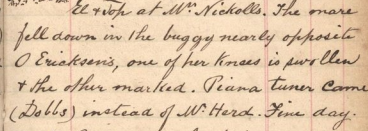 El & Top at Mr. Nickolls. The mare
fell down in the buggy nearly opposite
O Ericksen's, one of her knees is swollen
& the other marked. Piana tuner came
(Dobbs) instead of Mr Herd. Fine day.